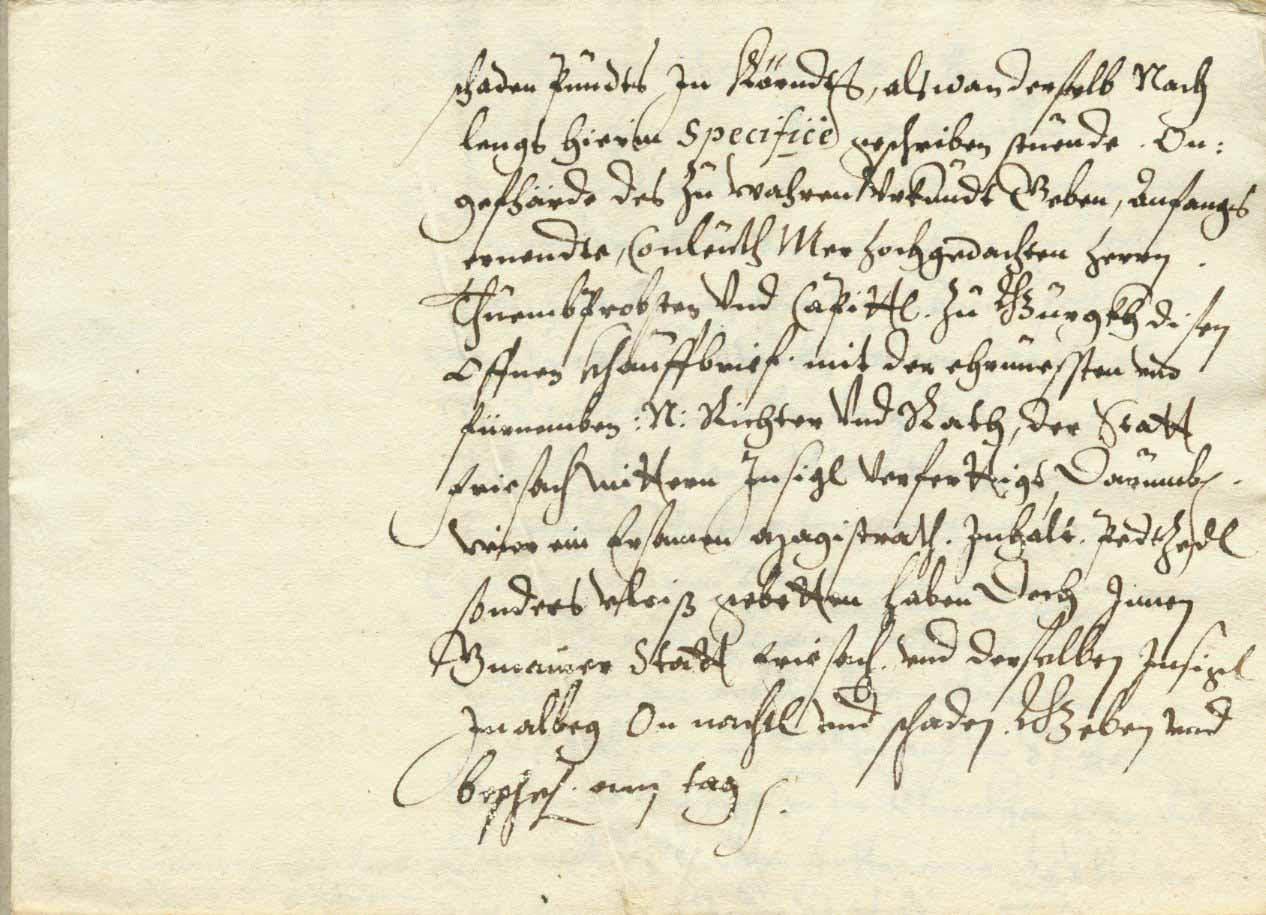 schaden Pundts In Kärndtn, als wan derselb Nach
lengs hierin Specificè geschriben stuende. On:
gefhärde des Zu wahren Vrkundt Geben, Anfangs
ernendte, Conleuth Mer hochgedachten herrn
Thuembprobsten Vnd Capittl. Zu Gurgkh disen
offnen khauffbrief. mit der ehrnuessten vnd
fürnemben :N: Richter Vnd Rath, der Statt
Friesach mittern Insigl Verferttigt, Darumb
wier ein Ersamen Magistrath. Inhalt. Pedtzedl
sonders vleiß gebetten haben Doch Innen
Gmainer Statt Friesach. vnd derselben Insigl
In albeg On nachtl vnd schaden. Geben vnd
beschech. am tag